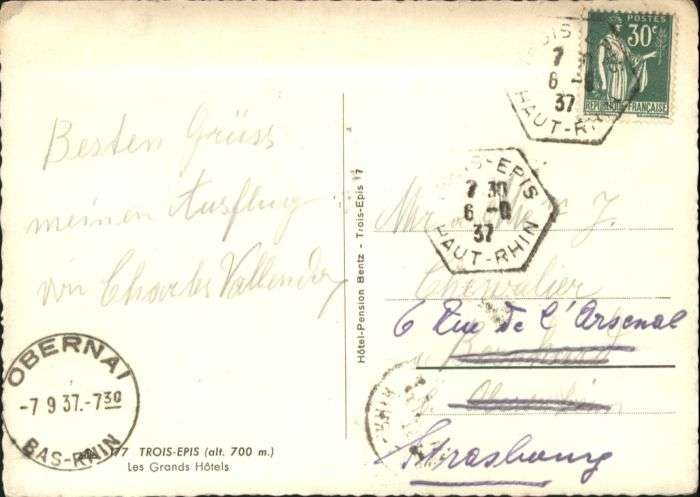 POSTES
30c
RÉPUBLIQUE FRANÇAISE
TROIS-EPIS
7
6
37
HAUT-RHIN
TROIS-EPIS
7 30
6 -9
37
HAUT-RHIN
Besten Grüss
meinen Ausflug
von Charles
Hôtel-Pension Bentz - Trois-Epis 17
Mr
J.
Chevalier
6 Rue de l'Arsenal
Strasbourg
OBERNAI
-7 9 37.-7 30
BAS-RHIN
77 TROIS-EPIS (alt. 700 m.)
Les Grands Hôtels